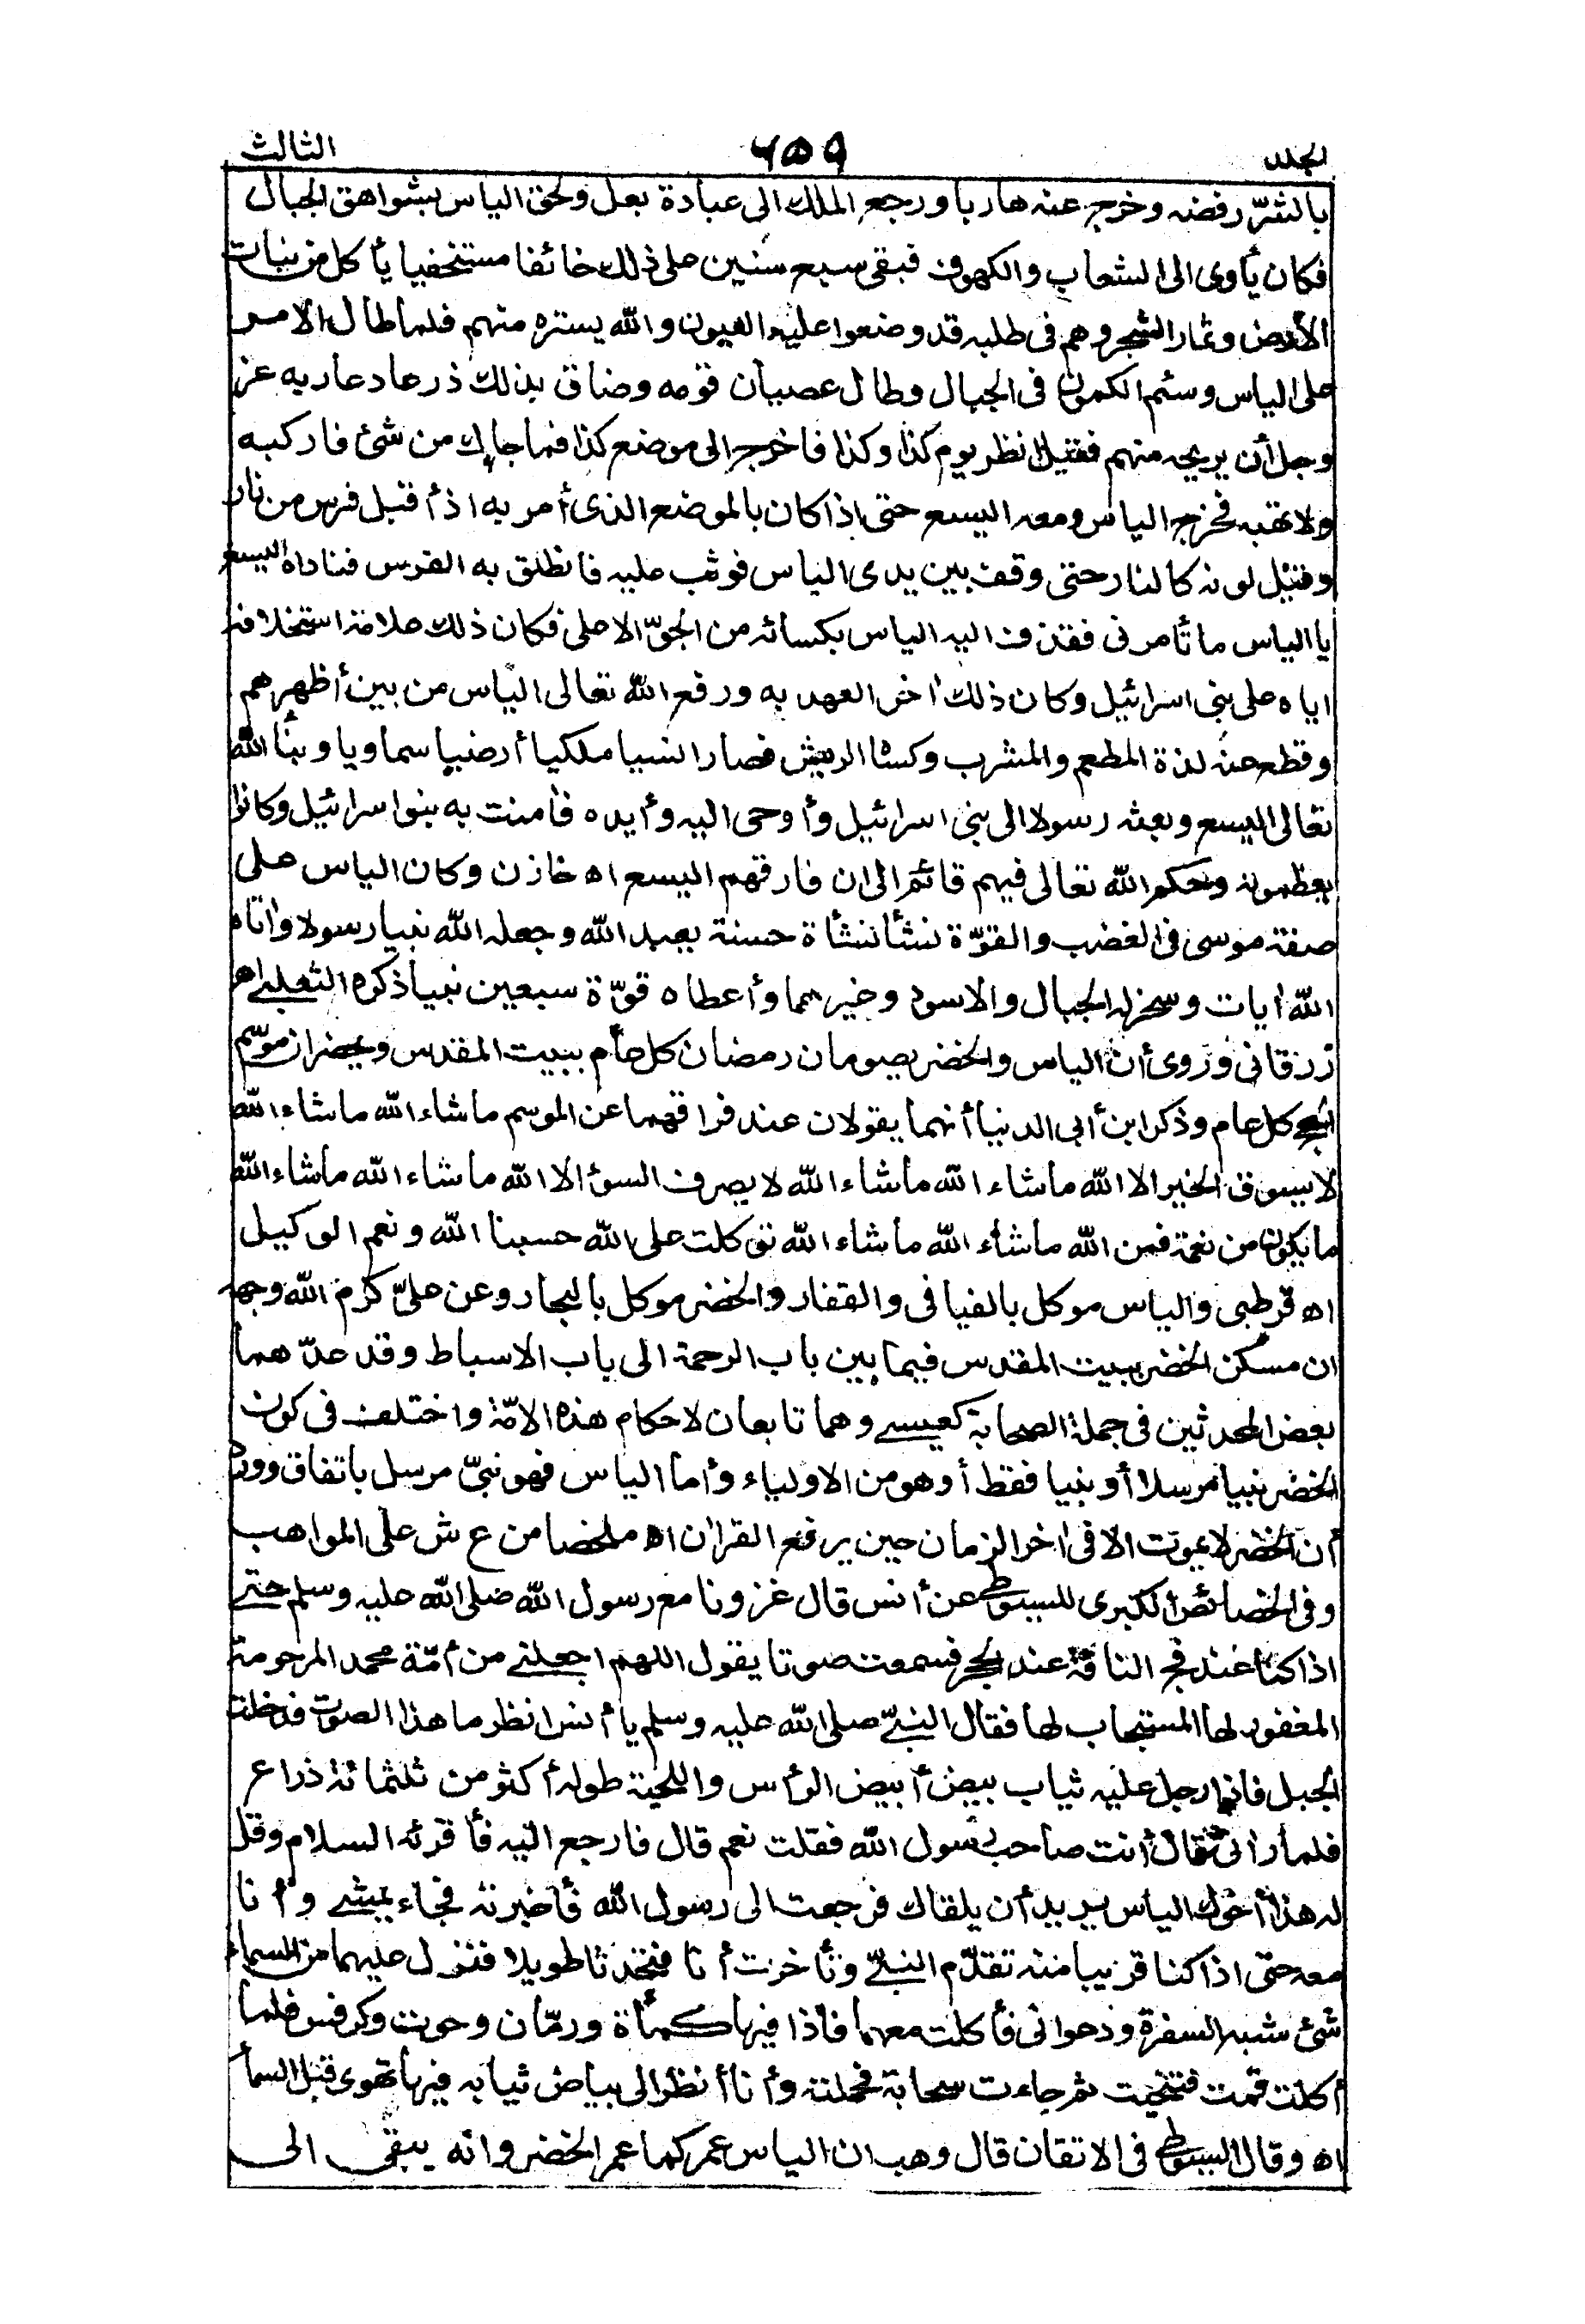 الجلد ٦٥٩ الثالث
بالشرّ رفضه وخرج عنه هاربا ورجع الملك الى عبادة بعل ولحق الياس بشواهق الجبال
فكان يأوى الى الشعاب والكهوف فبقى سبع سنين على ذلك خائفا مستخفيا يأكل من نبات
الأرض وثمار الشجر وهم فى طلبه قد وضعوا عليه العيون والله يستره منهم فلما طال الامر
على الياس وسئم الكمون فى الجبال وطال عصيان قومه وضاق بذلك ذرعا دعا ربه عز
وجل أن يريحه منهم فقيل انظر يوم كذا وكذا فاخرج الى موضع كذا فما جاءك من شئ فاركبه
ولا تهبه فخرج الياس ومعه اليسع حتى اذا كان بالموضع الذى أمر به اذ أقبل فرس من نار
وقيل لونه كالنار حتى وقف بين يدى الياس فوثب عليه فانطلق به الفرس فناداه اليسع
يا الياس ما تأمرنى فقذف اليه الياس بكسائه من الجوّ الاعلى فكان ذلك علامة استخلافه
اياه على بنى اسرائيل وكان ذلك اٰخر العهد به ورفع الله تعالى الياس من بين أظهرهم
وقطع عنه لذة المطعم والمشرب وكساه الريش فصار انسيا ملكيا أرضيا سماويا ونبأ الله
تعالى اليسع وبعثه رسولا الى بنى اسرائيل وأوحى اليه وأيده فاٰمنت به بنوا سرائيل وكانوا
يعظمونه وحكم الله تعالى فيهم قائم الى ان فارقهم اليسع اه خازن وكان الياس على
صفة موسى فى الغضب والقوّة نشأ نشأة حسنة يعبد الله وجعله الله نبيا رسولا واٰتاه
الله اٰيات وسخر له الجبال والاسود وغيرهما وأعطاه قوّة سبعين نبيا ذكره الثعلبى اه
زرقانى وروى أن الياس والخضر يصومان رمضان كل عام ببيت المقدس ويحضران موسم
الحج كل عام وذكر ابن أبى الدنيا أنهما يقولان عند فراقهما عن الموسم ما شاء الله ما شاء الله
لا يسوق الخير الا الله ما شاء الله ما شاء الله لا يصرف السوء الا الله ما شاء الله ما شاء الله
ما يكون من نعمة فمن الله ما شاء الله ما شاء الله توكلت على الله حسبنا الله ونعم الوكيل
اه قرطبى والياس موكل بالفيافى والقفار والخضر موكل بالبحار وعن علىّ كرّم الله وجهه
ان مسكن الخضر ببيت المقدس فيما بين باب الرحمة الى باب الاسباط وقد عدّهما
بعض المحدثين فى جملة الصحابة كعيسى وهما تابعان لاحكام هذه الامّة واختلف فى كون
الخضر نبيا مرسلا أو نبيا فقط أو هو من الاولياء وأما الياس فهو نبىّ مرسل باتفاق وورد
أن الخضر لا يموت الا فى اٰخر الزمان حين يرفع القراٰن اه ملخصا من ع ش على المواهب
وفى الخصائص الكبرى للسيوطى عن أنس قال غزونا مع رسول الله صلى الله عليه وسلم حتى
اذا كنا عند فج الناقة عند الحجر فسمعت صوتا يقول اللهم اجعلنى من أمّة محمد المرحومة
المغفور لها المستجاب لها فقال النبىّ صلى الله عليه وسلم يا أنس انظر ما هذا الصوت فدخلت
الجبل فاذا رجل عليه ثياب بيض أبيض الرأس واللحية طوله أكثر من ثلثمائة ذراع
فلما راٰنى قال أنت صاحب رسول الله فقلت نعم قال فارجع اليه فأقرئه السلام وقل
له هذا أخوك الياس يريد أن يلقاك فرجعت الى رسول الله فأخبرته فجاء يمشى وأنا
معه حتى اذا كنا قريبا منه تقدّم النبىّ وتأخرت أنا فتحدثا طويلا فنزل عليهما من السماء
شئ شبه السفرة ودعوانى فأكلت معهما فاذا فيها كمأة ورمّان وحوت وكرفس فلما
أكلت قمت فتنحيت ثم جاءت سحابة فحملته وأنا أنظر الى بياض ثيابه فيها تهوى قبل السماء
اه وقال السيوطى فى الاتقان قال وهب ان الياس عمر كما عمر الخضر وانه يبقى الى